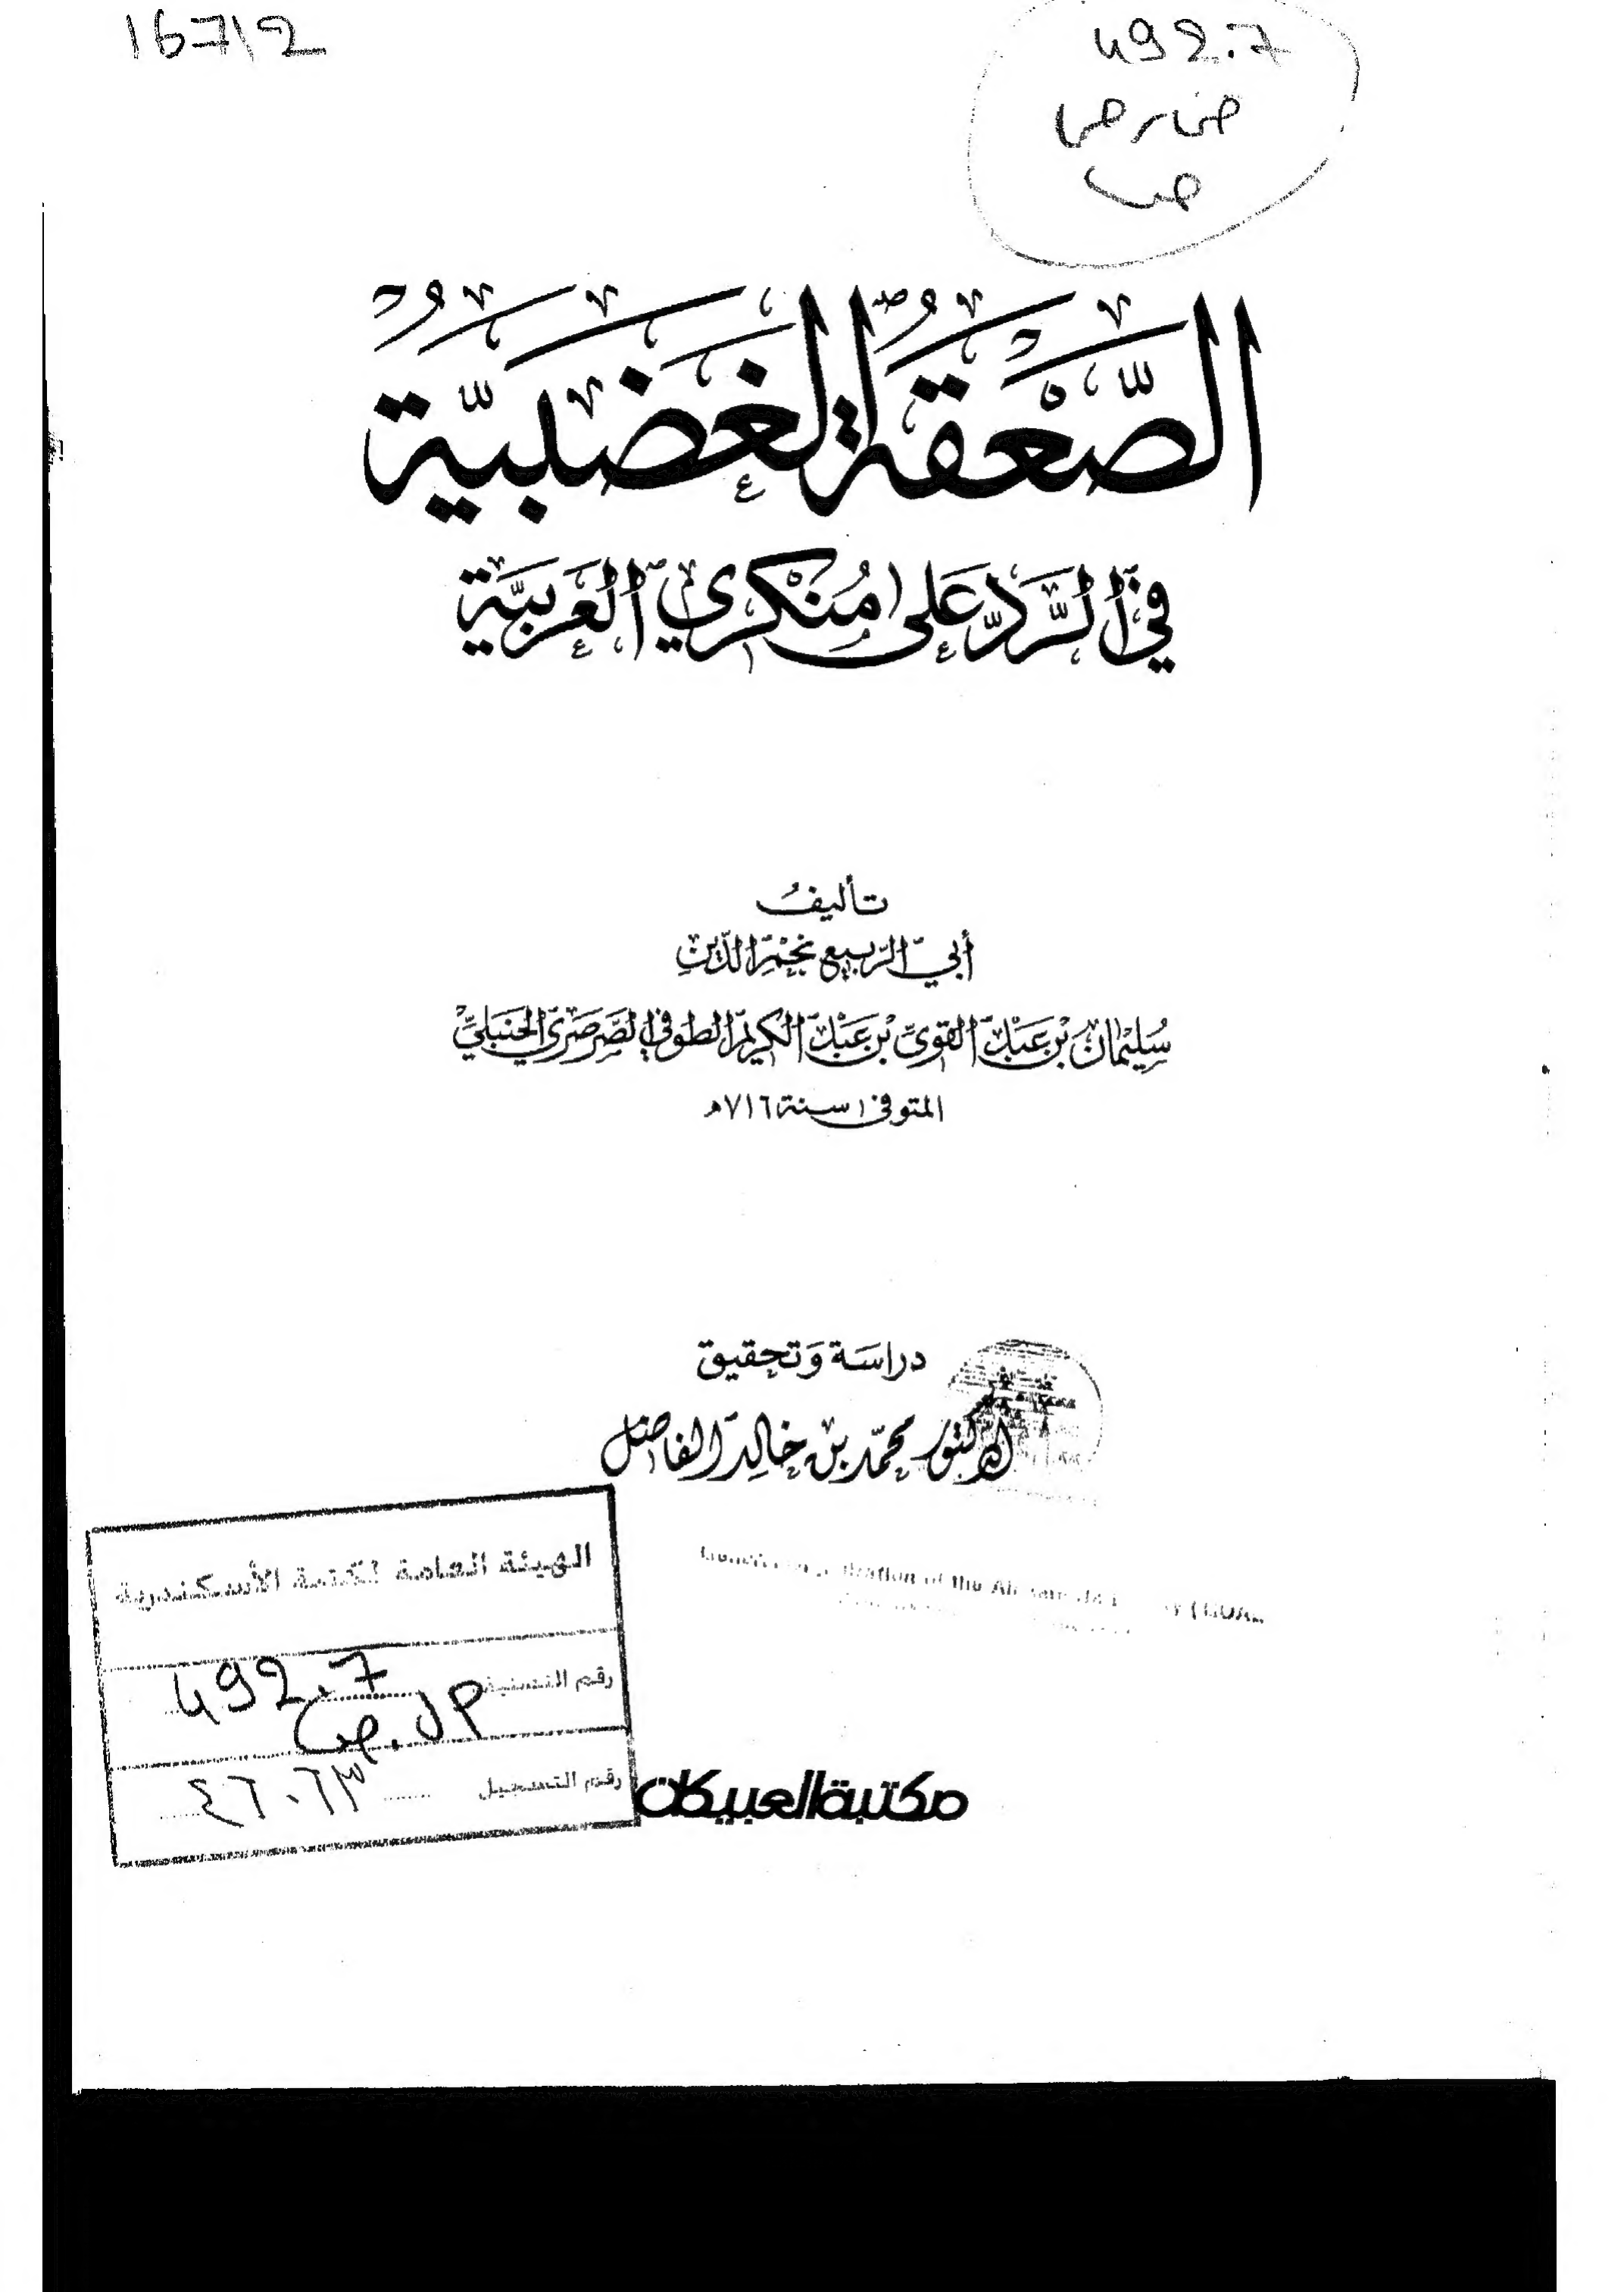 16712
492.7
ص
الصَّعْقَةُ الغَضَبِيَّةُ
فِي الرَّدِّ عَلَى مُنْكِرِي الْعَرَبِيَّةِ
تأليفُ
أبي الرَّبيع نجم الدّين
سُليْمان بن عَبْد القويّ بن عَبْد الكريم الطوفي الصَّرصَريّ الحَنبَليّ
المتوفى سنة ٧١٦ه
دراسَة وَتحقيق
الدكتور محمّد بن خالد الفاضل
الهيئة العامة لمكتبة الأسكندرية
رقم التصنيف 492.7
رقم التسجيل ٤٦٠٦٣
مكتبة العبيكان